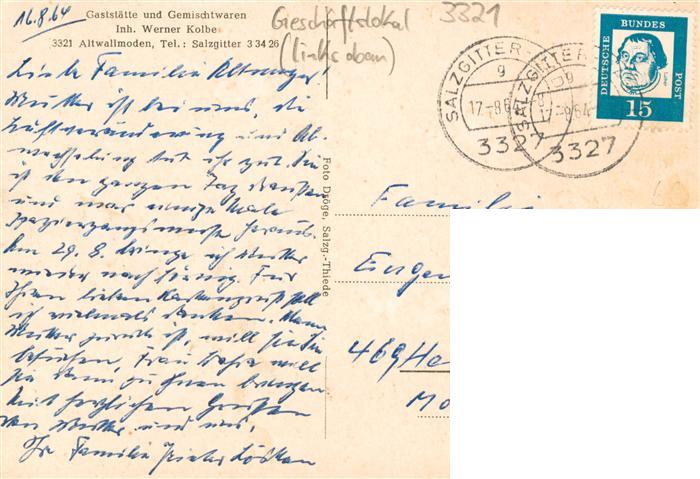 16.8.64
Gaststätte und Gemischtwaren
Inh. Werner Kolbe
3321 Altwallmoden, Tel.: Salzgitter 3 34 26
Geschäftslokal
(links oben)
3321
SALZGITTER
g
17.-8.6
3327
SALZGITTER
17. 8.64
3327
DEUTSCHE BUNDES POST
15
Liebe Familie
Mutter ist bei uns, die
Luftveränderung und Ab-
wechselung tut ihr gut. Sie
ist den ganzen Tag draußen
und war einige Male
spazierengangsweise heraus.
Am 29. 8. bringe ich Mutter
wieder nach Für
Ihren lieben Kartengruß soll
ich vielmals danken. Wenn
Mutter zurück ist, will sie Sie
besuchen, Frau will
sie dann zu Ihnen bringen
Mit herzlichen Grüßen
von Mutter und uns,
Ihre Familie
Foto Dröge, Salzg.-Thiede
Familie
Eugen
469 He
Mo